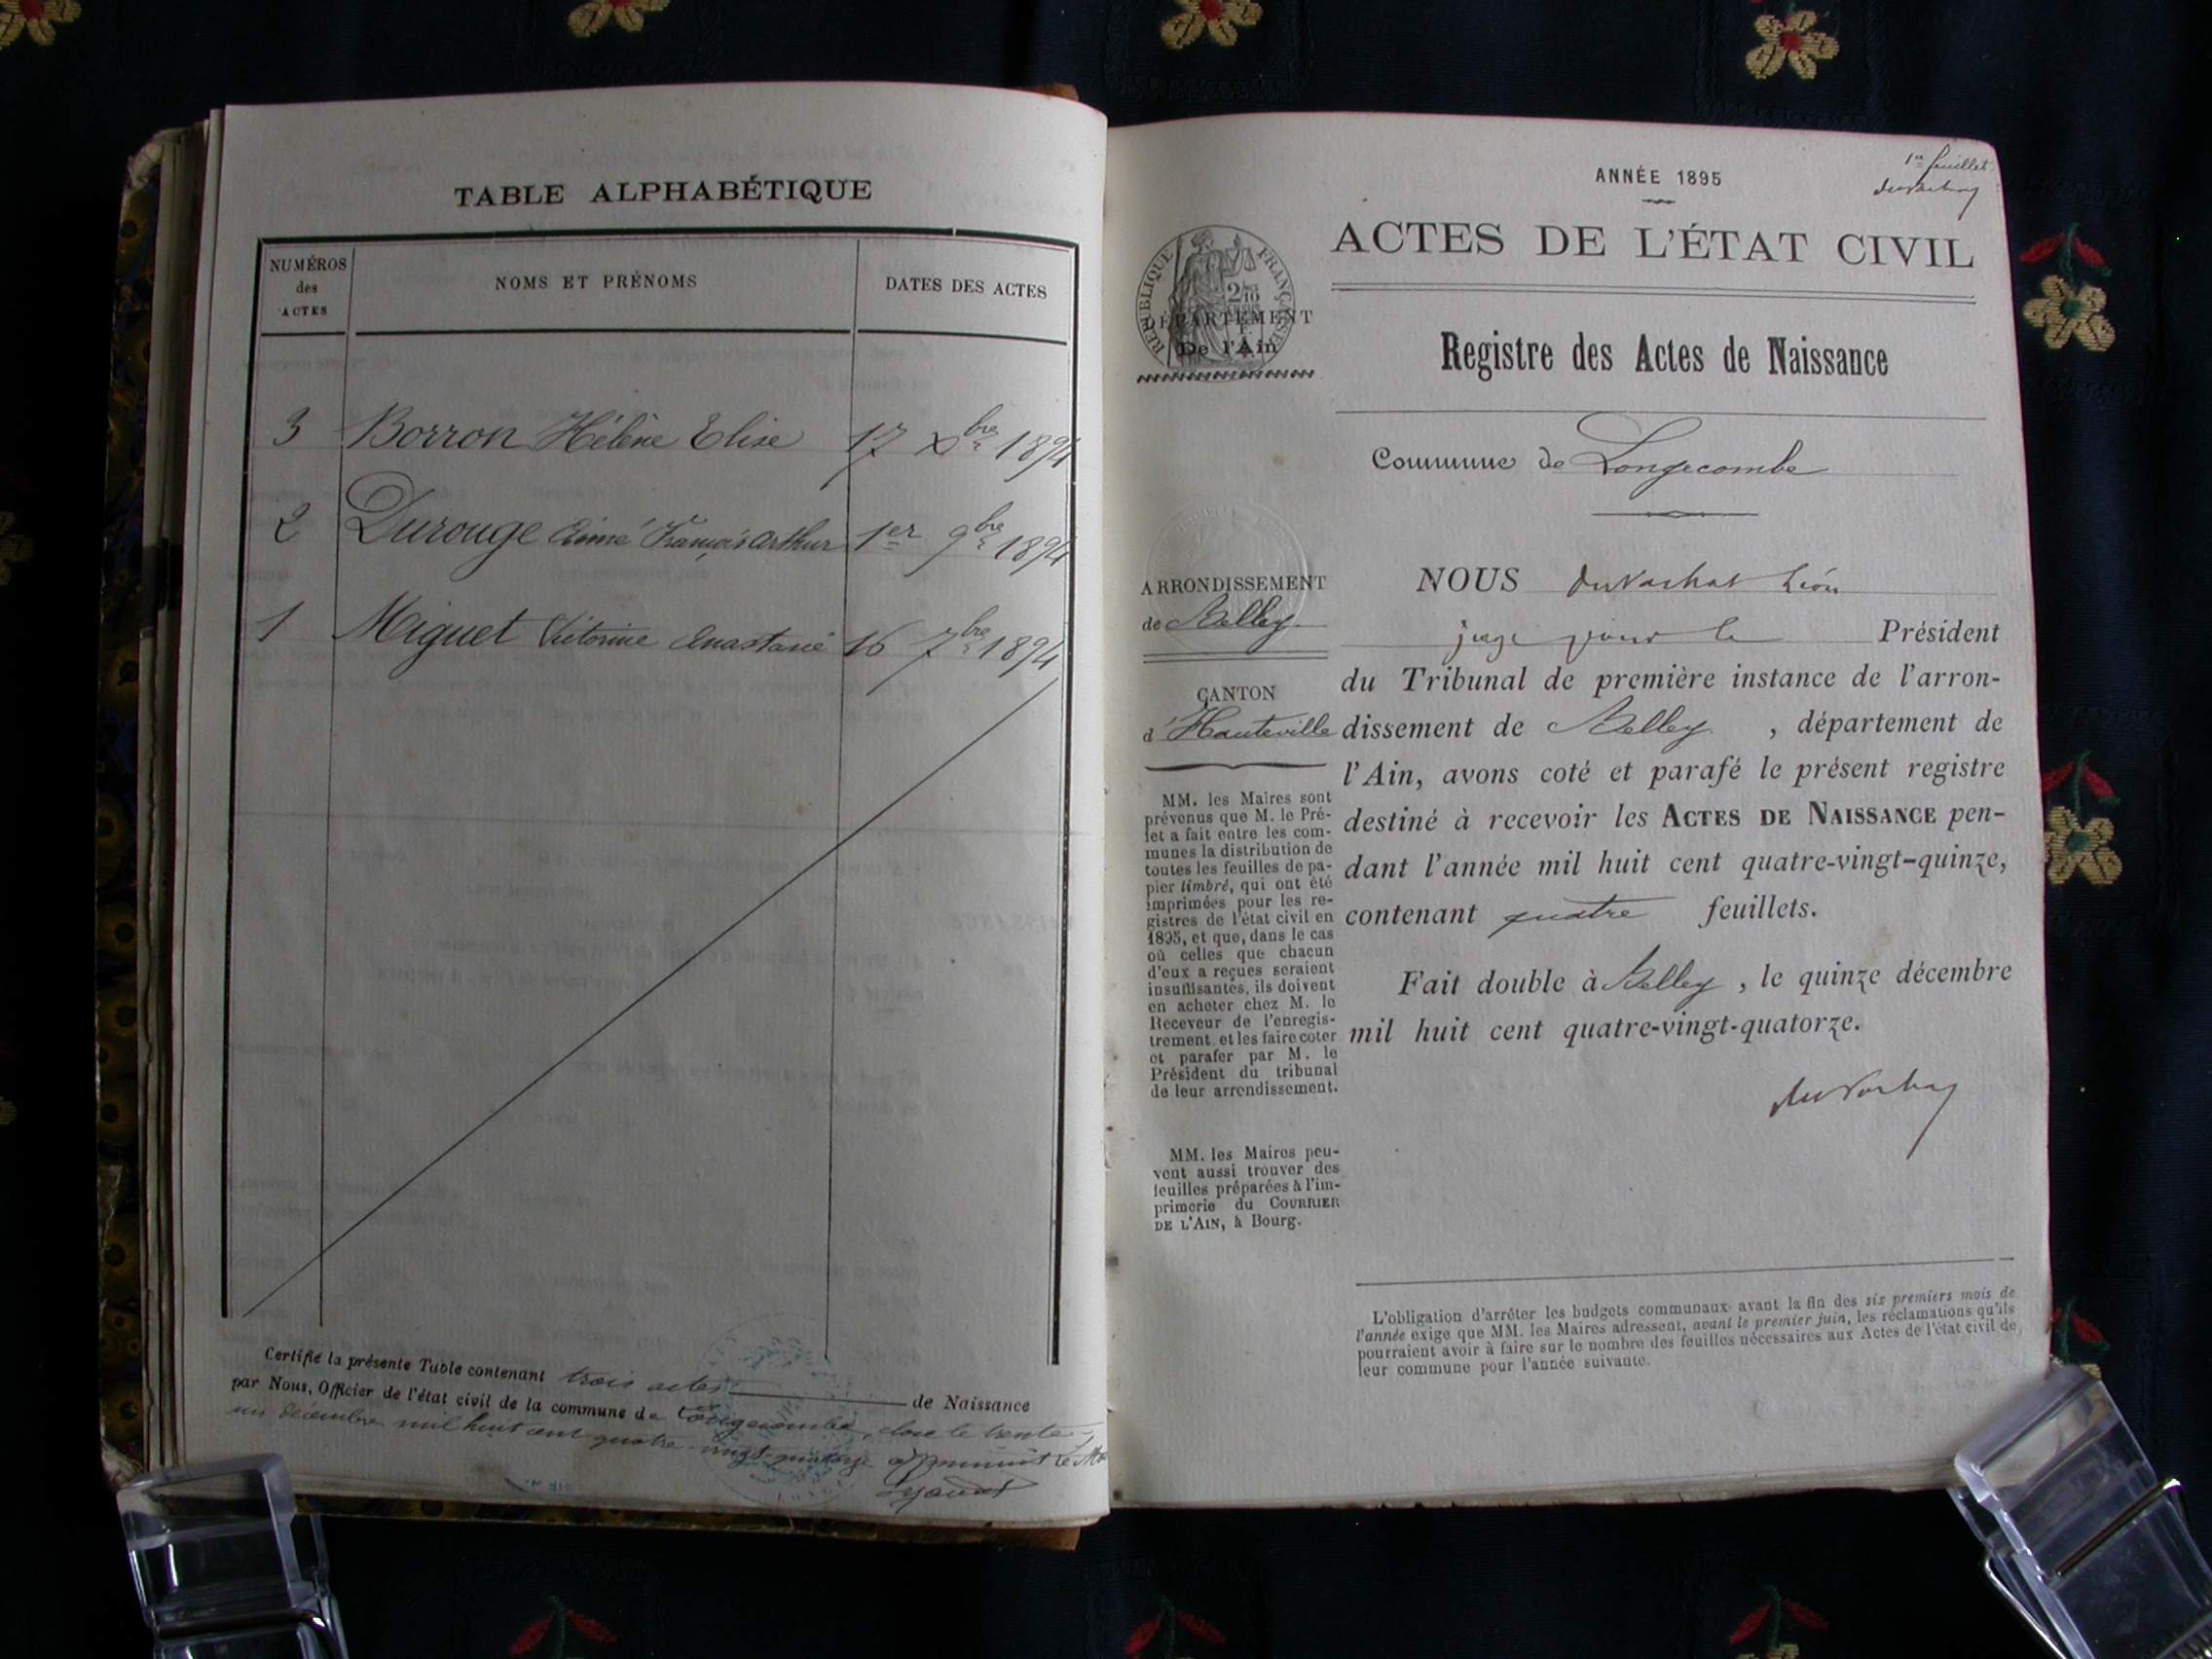 TABLE ALPHABÉTIQUE
NUMÉROS
des
ACTES
NOMS ET PRÉNOMS
DATES DES ACTES
3 Borron Hélène Elise 17 Xbre 1894
2 Durouge Aimé François Arthur 1er 9bre 1894
1 Miguet Victorine Anastasie 16 7bre 1894
Certifié la présente Table contenant trois actes de Naissance
par Nous, Officier de l'état civil de la commune de Longecombe, clos le trente-
un décembre mil huit cent quatre-vingt-quatorze à minuit Le
1er feuillet
ANNÉE 1895
ACTES DE L'ÉTAT CIVIL
RÉPUBLIQUE FRANÇAISE
DÉPARTEMENT
De l'Ain
Registre des Actes de Naissance
Commune de Longecombe
ARRONDISSEMENT
de Belley
CANTON
d'Hauteville
MM. les Maires sont
prévenus que M. le Pré-
fet a fait entre les com-
munes la distribution de
toutes les feuilles de pa-
pier timbré, qui ont été
imprimées pour les re-
gistres de l'état civil en
1895, et que, dans le cas
où celles que chacun
d'eux a reçues seraient
insuffisantes, ils doivent
en acheter chez M. le
Receveur de l'enregis-
trement, et les faire coter
et parafer par M. le
Président du tribunal
de leur arrondissement.
MM. les Maires peu-
vent aussi trouver des
feuilles préparées à l'im-
primerie du COURRIER
DE L'AIN, à Bourg.
NOUS duVachat Léon
juge pour le Président
du Tribunal de première instance de l'arron-
dissement de Belley, département de
l'Ain, avons coté et parafé le présent registre
destiné à recevoir les ACTES DE NAISSANCE pen-
dant l'année mil huit cent quatre-vingt-quinze,
contenant quatre feuillets.
Fait double à Belley, le quinze décembre
mil huit cent quatre-vingt-quatorze.
duVachat
L'obligation d'arrêter les budgets communaux avant la fin des six premiers mois de
l'année exige que MM. les Maires adressent, avant le premier juin, les réclamations qu'ils
pourraient avoir à faire sur le nombre des feuilles nécessaires aux Actes de l'état civil de
leur commune pour l'année suivante.